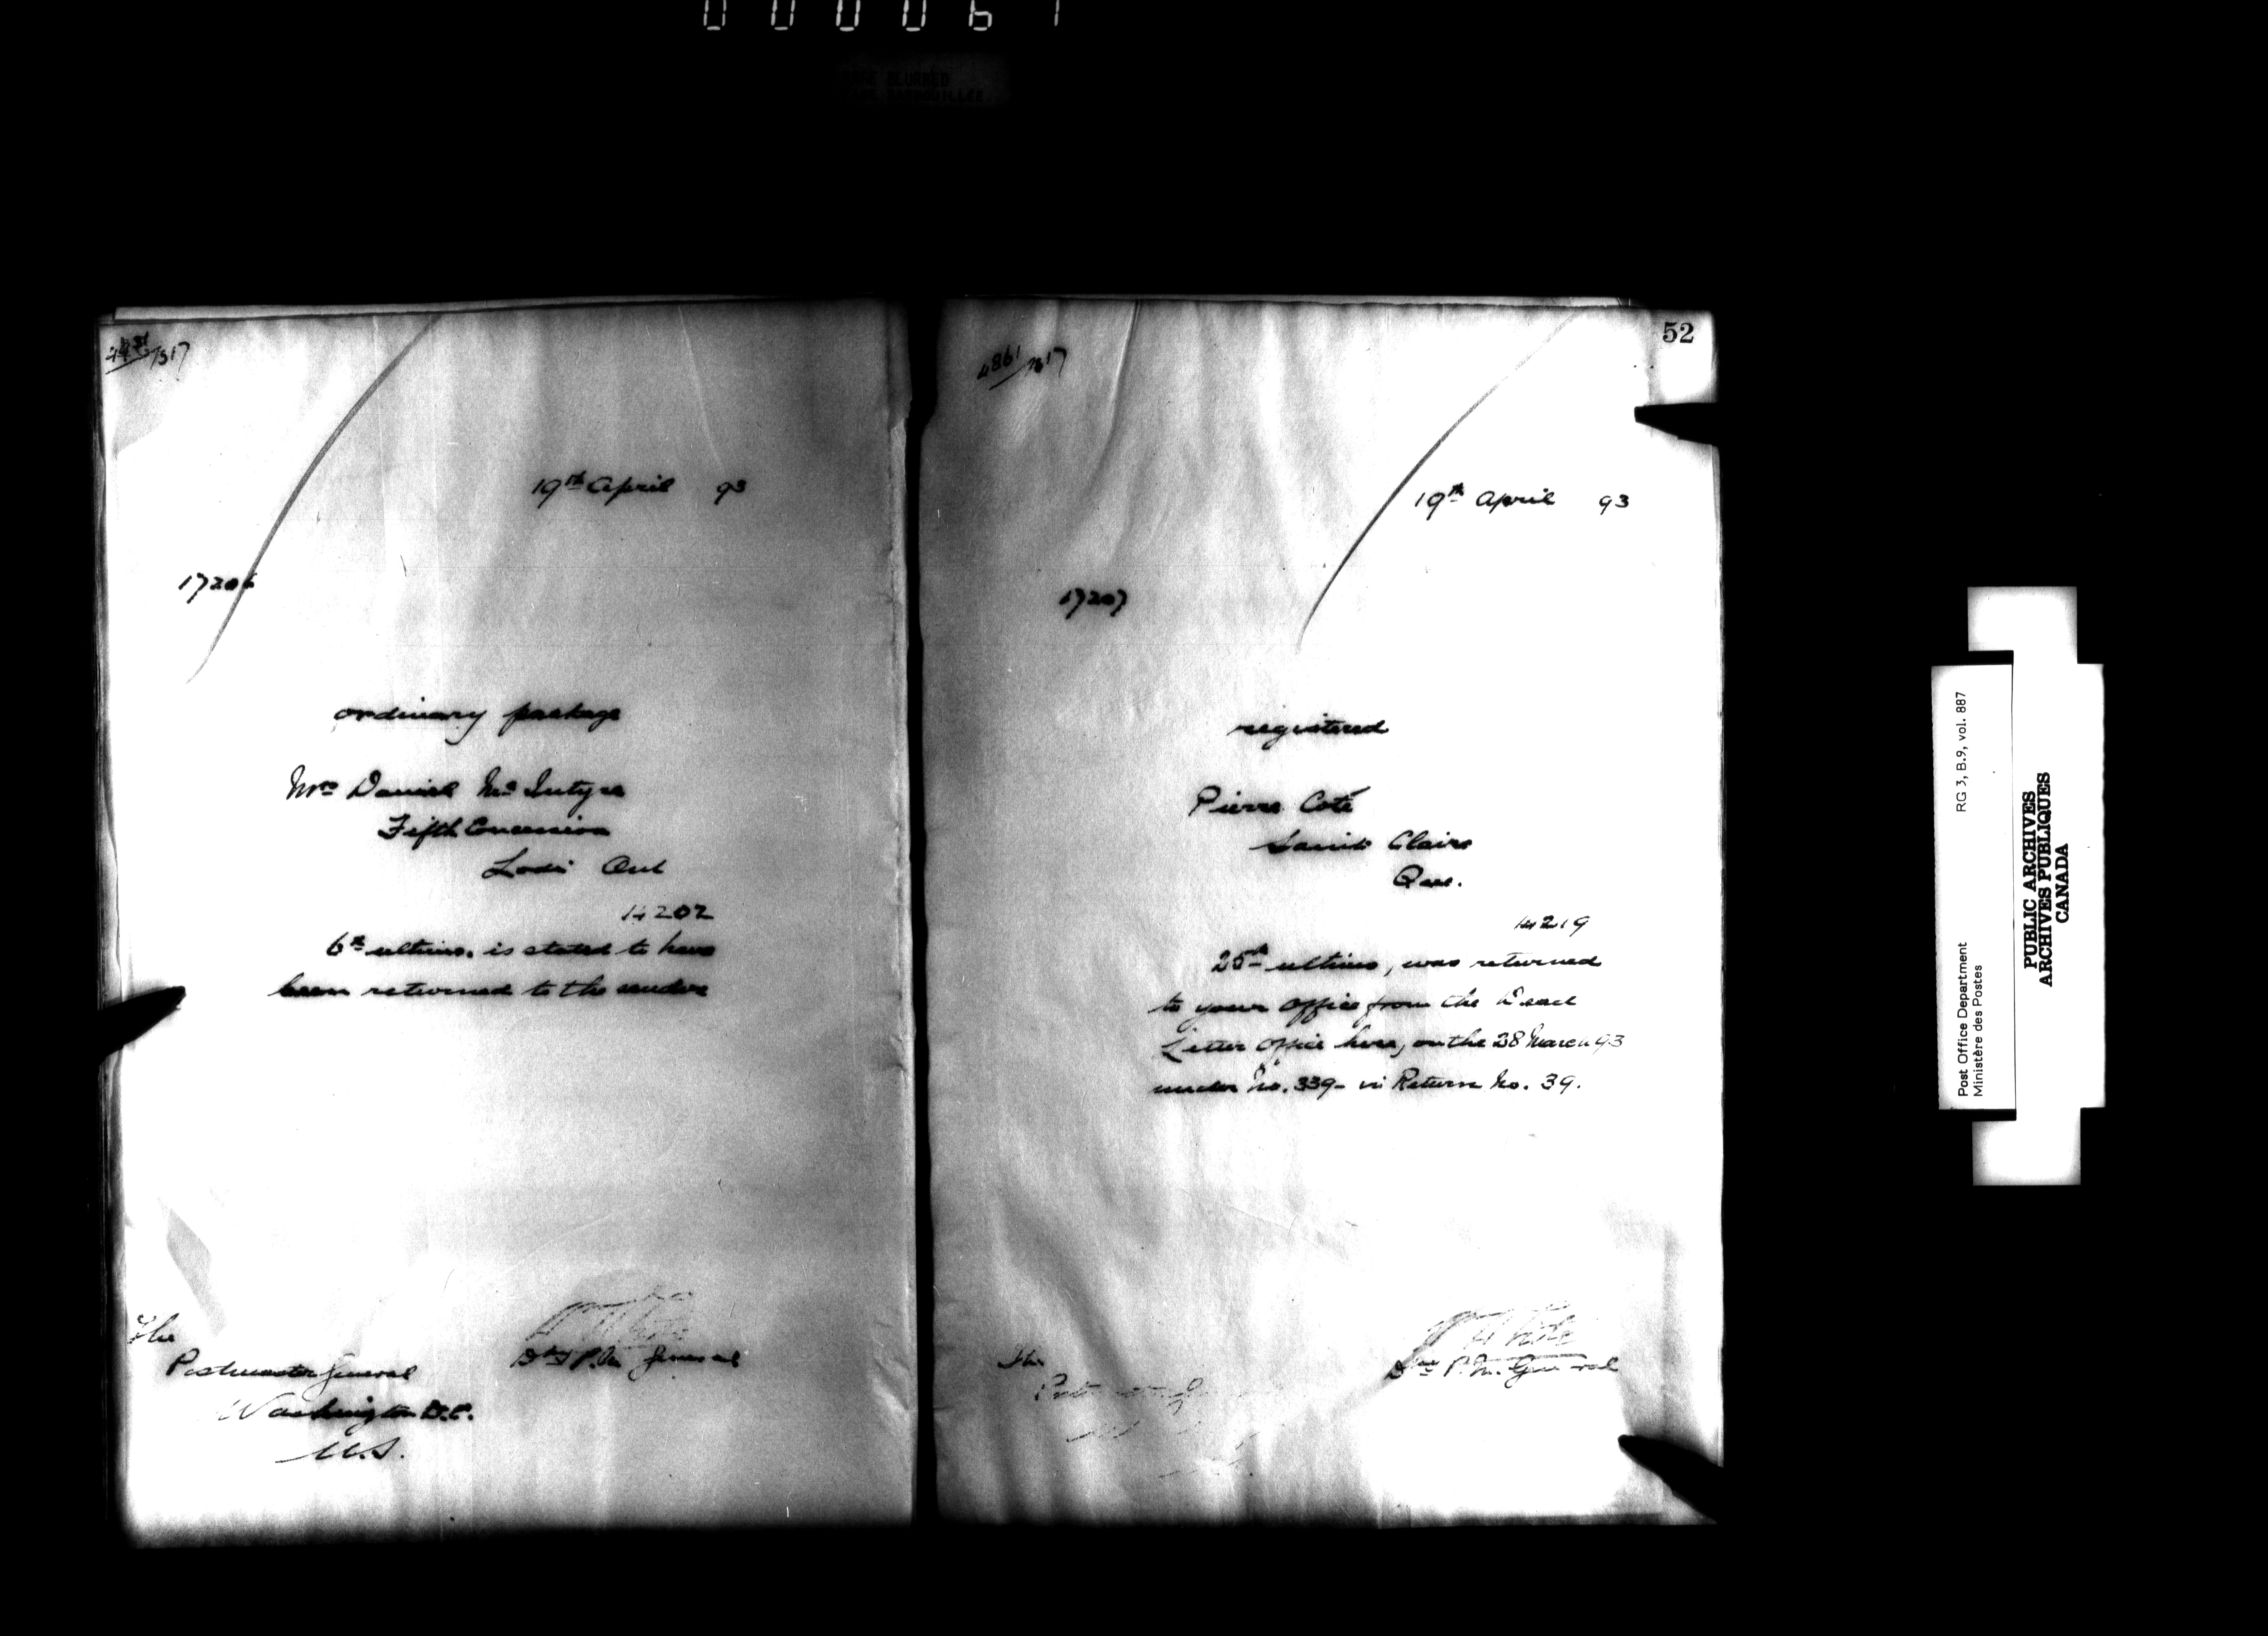 19th April 93
17206
ordinary package
Mrs Daniel Mc Intyre
Fifth Concession
Lodi Ont
14202
6th ultimo, is stated to have
been returned to the sender
The
Postmaster General
Washington D.C.
U.S.
W White
Dy P.M. General
52
4861/317
19th April 93
17207
registered
Pierre Coté
Saint Claire
Que.
14219
25th ultimo, was returned
to your Office from the Dead
Letter Office here, on the 28 March 93
under No. 339 - in Return No. 39.
The
W White
Dy P.M. General
Post Office Department
Ministère des Postes
RG 3, B.9, vol. 887
PUBLIC ARCHIVES
ARCHIVES PUBLIQUES
CANADA